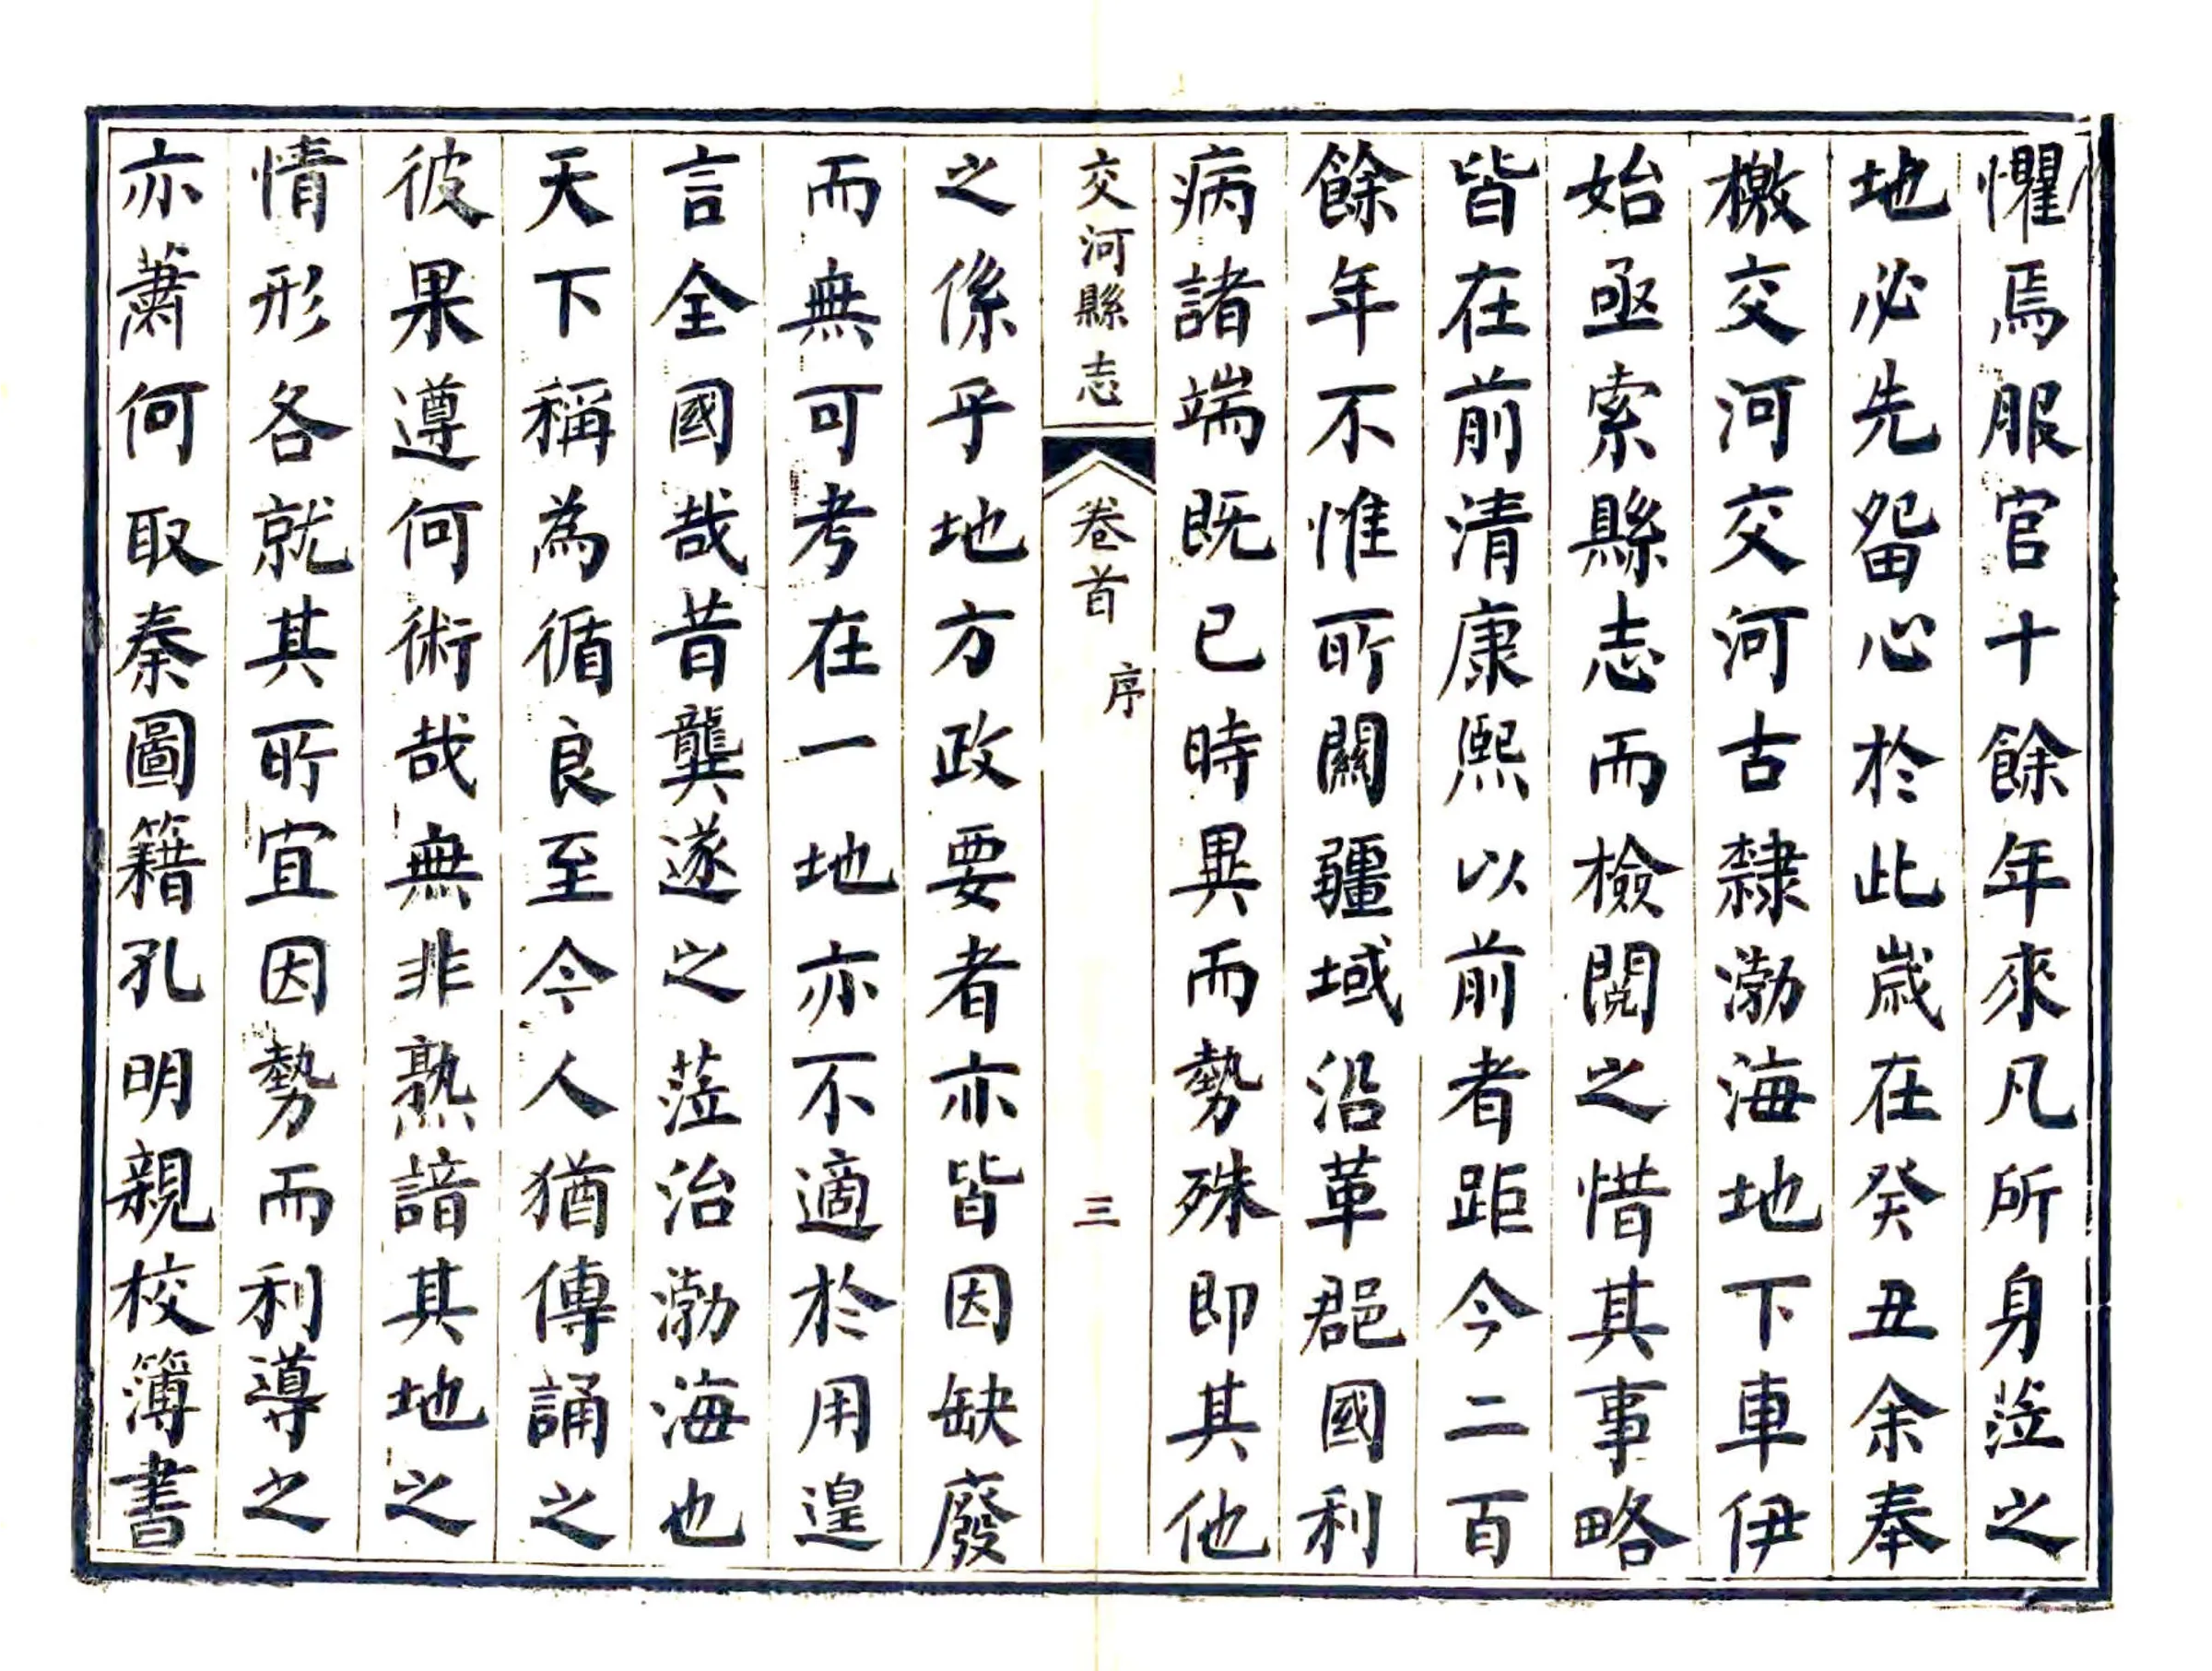 懼焉服官十餘年來凡所身蒞之
地必先畱心於此歲在癸丑余奉
檄交河交河古隸渤海地下車伊
始亟索縣志而檢閱之惜其事略
皆在前清康熙以前者距今二百
餘年不惟所關疆域沿革郡國利
病諸端既已時異而勢殊即其他
交河縣志 卷首 序 三
之係乎地方政要者亦皆因缺廢
而無可考在一地亦不適於用遑
言全國哉昔龔遂之蒞治渤海也
天下稱為循良至今人猶傳誦之
彼果遵何術哉無非熟諳其地之
情形各就其所宜因勢而利導之
亦蕭何取秦圖籍孔明親校簿書